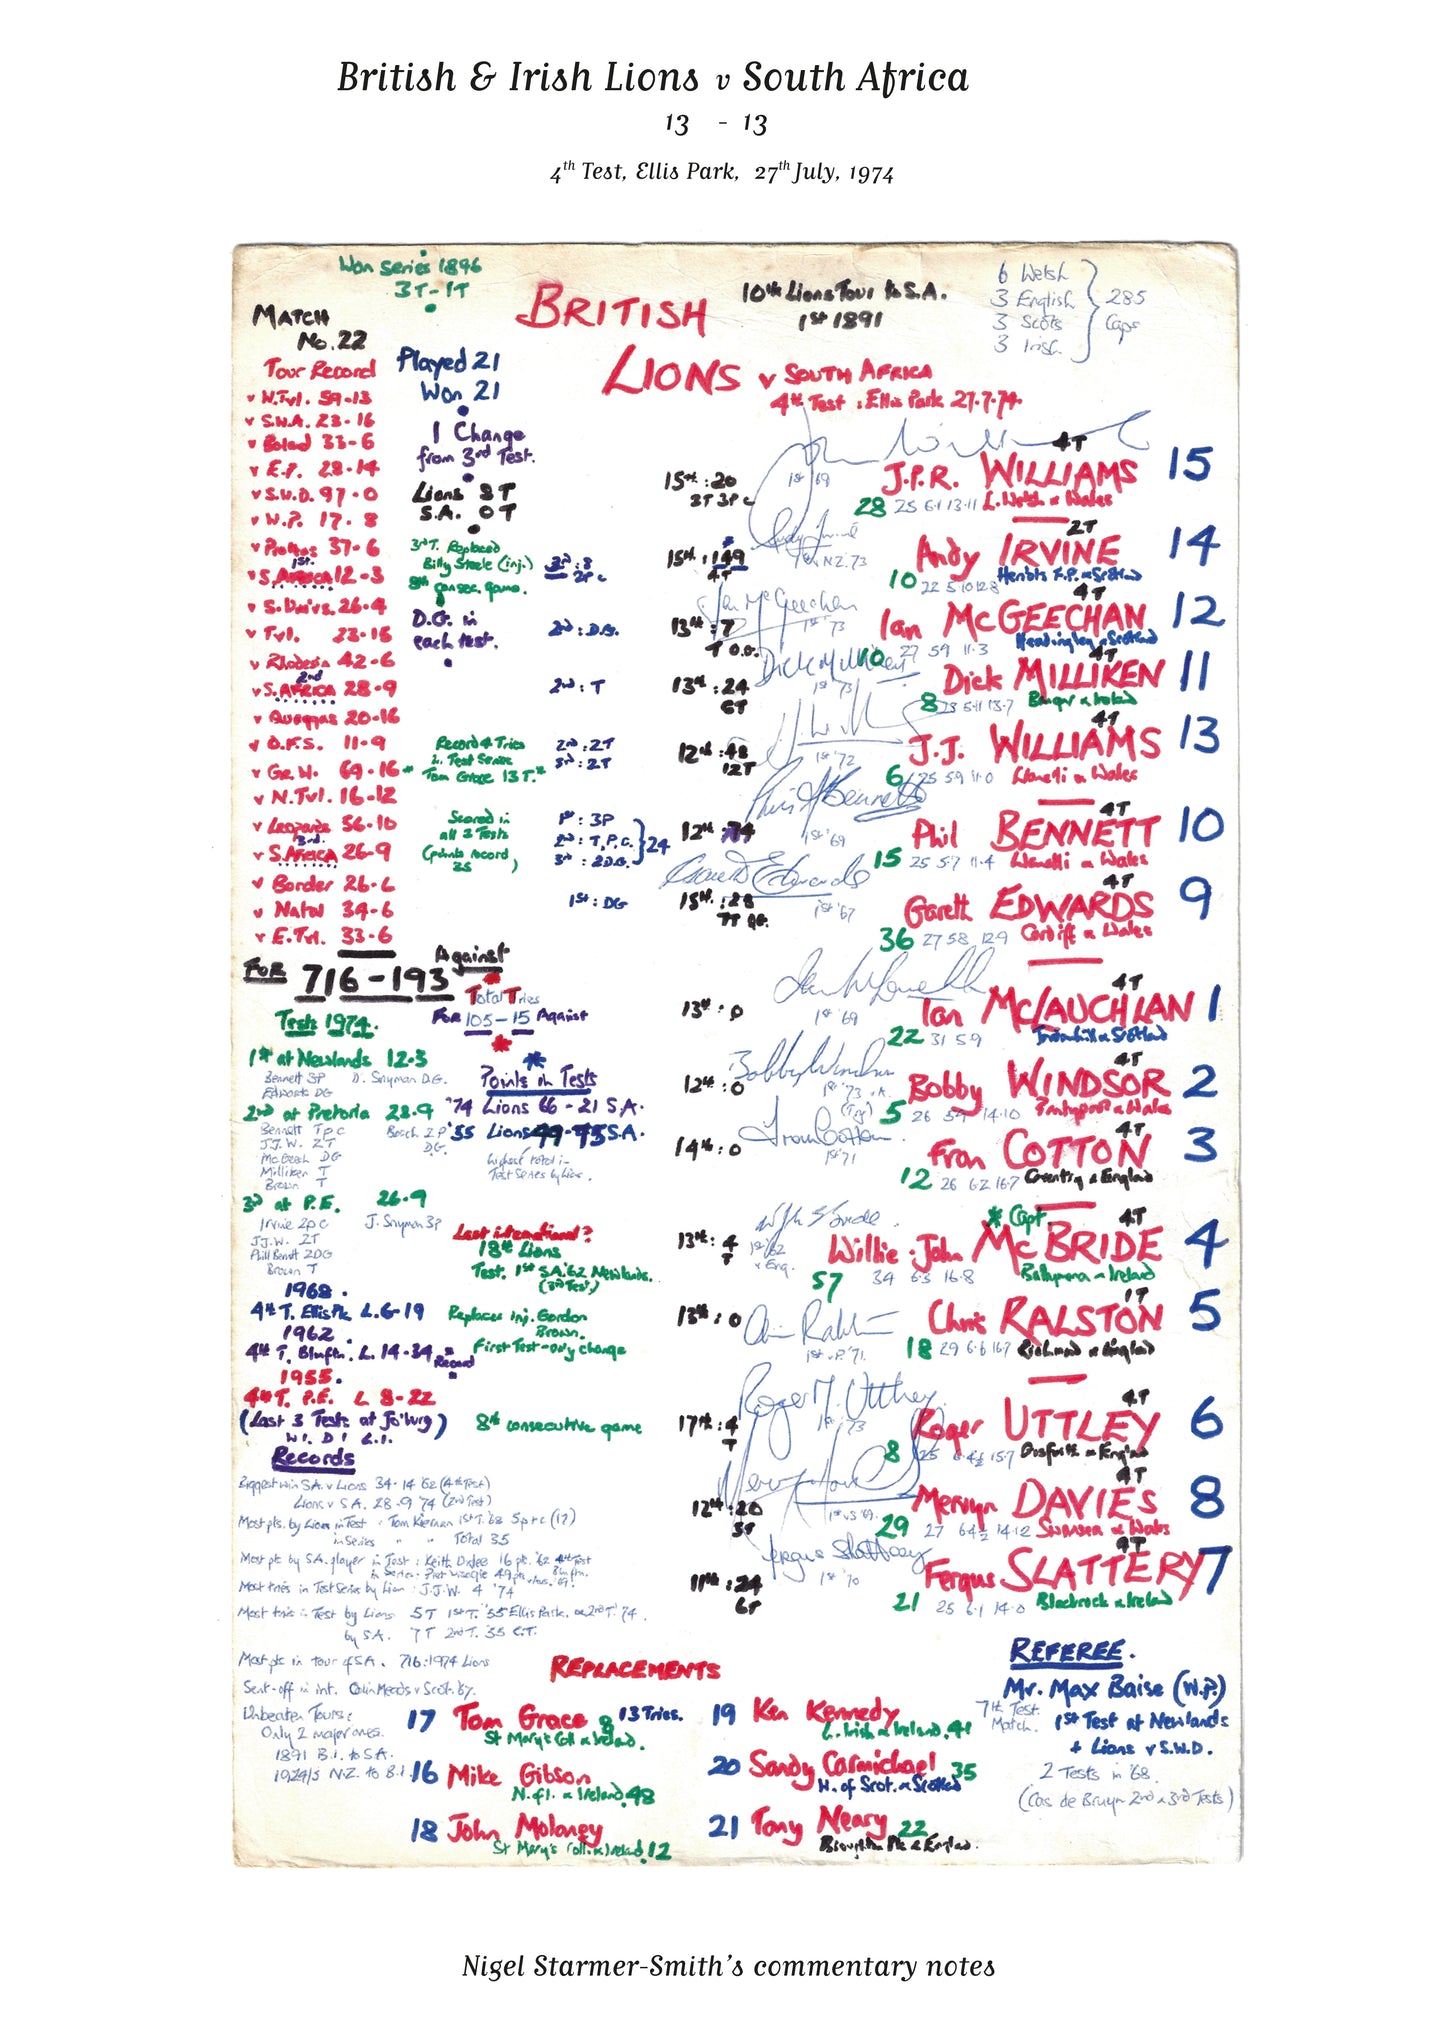 British & Irish Lions v South Africa
13 - 13
4th Test, Ellis Park, 27th July, 1974
Won series 1896
3T-1T
MATCH
No.22
BRITISH
LIONS v SOUTH AFRICA
4th Test : Ellis Park 27.7.74
10th Lions Tour to S.A.
1st 1891
6 Welsh
3 English
3 Scots
3 Irish
285
Caps
Tour Record
v N.Tvl. 59-13
v S.W.A. 23-16
v Boland 33-6
v E.P. 28-14
v S.W.D. 97-0
v W.P. 17-8
v Proteas 37-6
1st
v S.AFRICA 12-3
v S. Univs. 26-4
v Tvl. 23-15
v Rhodesia 42-6
2nd
v S.AFRICA 28-9
v Quaggas 20-16
v O.F.S. 11-9
v Gr.W. 69-16
v N.Tvl. 16-12
v Leopards 56-10
3rd
v S.AFRICA 26-9
v Border 26-6
v Natal 34-6
v E.Tvl. 33-6
FOR 716-193 Against
Played 21
Won 21
1 Change
from 3rd Test.
Lions 8T
S.A. 0T
3rd T. Replaced
Billy Steele (inj.)
8th consec. game.
D.G. in
each test.
2nd : D.G.
2nd : T
Record 4 Tries
in Test Series
Tom Grace 13 T.
2nd : 2T
3rd : 2T
Scored in
all 3 Tests
(points record
1st : 3P
2nd : T,P,C.
3rd : 2D.G.
24
1st : DG
15th : 20
2T 3P C
15th : 149
4T
13th : 7
T D.G.
13th : 24
6T
12th : 48
12T
12th : 74
15th : 28
7T DG.
13th : 0
12th : 0
14th : 0
13th : 4
T
13th : 0
17th : 4
T
12th : 20
5T
11th : 24
6T
4T
J.P.R. WILLIAMS 15
1st '69
28 25 6.1 13.11 L. Welsh & Wales
2T
Andy IRVINE 14
10 22 5.10 12.8 Heriots F.P. & Scotland
4T
Ian McGEECHAN 12
1st '73
10 27 5.9 11.3 Headingley & Scotland
4T
Dick MILLIKEN 11
1st '73
8 23 5.11 13.7 Bangor & Ireland
4T
J.J. WILLIAMS 13
1st '72
6 25 5.9 11.0 Llanelli & Wales
4T
Phil BENNETT 10
1st '69
15 25 5.7 11.4 Llanelli & Wales
4T
Gareth EDWARDS 9
1st '67
36 27 5.8 12.9 Cardiff & Wales
4T
Ian McLAUCHLAN 1
1st '69
22 31 5.9 Jordanhill & Scotland
4T
Bobby WINDSOR 2
1st '73
5 26 5.9 14.10 Pontypool & Wales
4T
Fran COTTON 3
1st '71
12 26 6.2 16.7 Coventry & England
* Capt. 4T
Willie-John McBRIDE 4
1st '62
v Eng.
57 34 6.3 16.8 Ballymena & Ireland
1T
Chris RALSTON 5
1st v F. '71
18 29 6.6 16.7 Richmond & England
4T
Roger UTTLEY 6
1st '73
8 25 6.4½ 15.7 Gosforth & England
4T
Mervyn DAVIES 8
29 27 6.4½ 14.12 Swansea & Wales
4T
Fergus SLATTERY 7
1st '70
21 25 6.1 14.0 Blackrock & Ireland
Total Tries
FOR 105-15 Against
Points in Tests
'74 Lions 66 - 21 S.A.
'55 Lions 49 - 75 S.A.
highest total in
Test Series by Lions.
Tests 1974.
1st at Newlands 12-3
Bennett 3P D. Snyman D.G.
Edwards DG
2nd at Pretoria 28-9
Bennett T p c Bosch 2P
J.J.W. 2T DG.
McGeech DG
Milliken T
Brown T
3rd at P.E. 26-9
Irvine 2p c J. Snyman 3p
J.J.W. 2T
Phil Bennett 2DG
Brown T
1968.
4th T. Ellis Pk. L. 6-19
1962.
4th T. Blmftn. L. 14-34 Record
1955.
4th T. P.E. L 8-22
(Last 3 Tests at Jo'burg)
W1. D1 L.1.
Last international?
18th Lions
Test. 1st S.A. '62 Newlands.
(3rd Test)
Replaces inj. Gordon
Brown.
First Test - only change
8th consecutive game
Records
Biggest win S.A. v Lions 34-14 '62 (4th Test)
Lions v S.A. 28-9 '74 (2nd Test)
Most pts. by Lion in Test : Tom Kiernan 1st T. '68 5p + c (17)
in Series " " Total 35
Most pts by S.A. player in Test : Keith Oxlee 16 pts. '62 4th Test
in Series
Most tries in Test Series by Lion : J.J.W. 4 '74
Most tries in Test by Lions 5T 1st T. '55 Ellis Park. & 2nd T. '74.
by S.A. 7T 2nd T. '55 C.T.
Most pts in tour of S.A. 716 : 1974 Lions
Sent-off in int. Colin Meads v Scot. '67.
Unbeaten Tours :
Only 2 major ones.
1891 B.I. to S.A.
1924/5 N.Z. to B.I.
REPLACEMENTS
17 Tom Grace 8 13 Tries.
St Mary's Coll & Ireland.
16 Mike Gibson
N.of I. & Ireland. 48
18 John Moloney
St Mary's Coll. & Ireland. 12
19 Ken Kennedy
L. Irish & Ireland. 41
20 Sandy Carmichael 35
W. of Scot. & Scotland
21 Tony Neary 22
Broughton Pk & England.
REFEREE.
Mr. Max Baise (W.P.)
7th Test
Match.
1st Test at Newlands
+ Lions v S.W.D.
2 Tests in '68.
(Cas de Bruyn 2nd & 3rd Tests)
Nigel Starmer-Smith's commentary notes